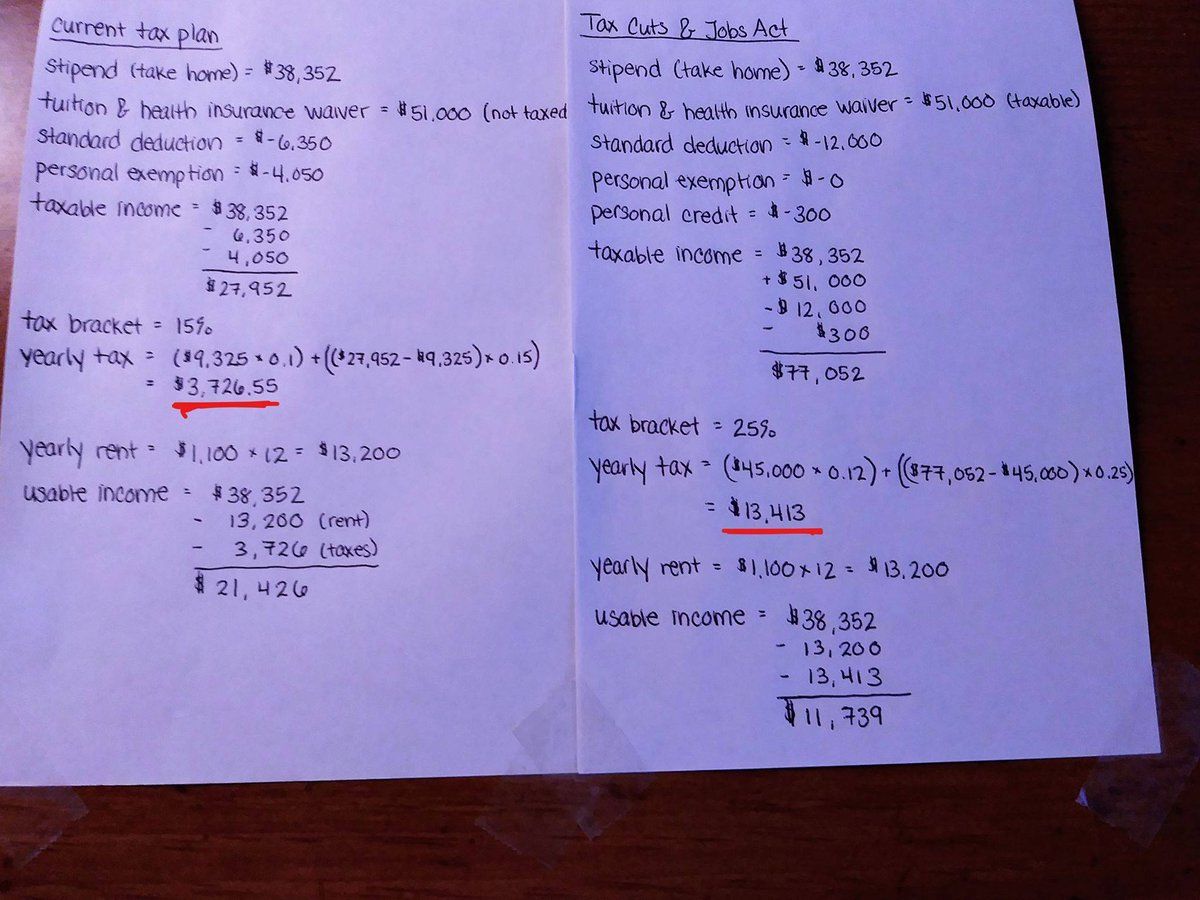 current tax plan
stipend (take home) = $38,352
tuition & health insurance waiver = $51,000 (not taxed
standard deduction = $-6,350
personal exemption = $-4,050
taxable income = $38,352
- 6,350
- 4,050
$27,952
tax bracket = 15%
yearly tax = ($9,325 × 0.1) + (($27,952 - $9,325) × 0.15)
= $3,726.55
yearly rent = $1,100 × 12 = $13,200
usable income = $38,352
- 13,200 (rent)
- 3,726 (taxes)
$ 21,426
Tax Cuts & Jobs Act
stipend (take home) = $38,352
tuition & health insurance waiver = $51,000 (taxable)
standard deduction = $-12,000
personal exemption = $-0
personal credit = $-300
taxable income = $38,352
+ $51,000
- $12,000
- $300
$77,052
tax bracket = 25%
yearly tax = ($45,000 × 0.12) + (($77,052 - $45,000) × 0.25)
= $13,413
yearly rent = $1,100 × 12 = $13,200
usable income = $38,352
- 13,200
- 13,413
$11,739